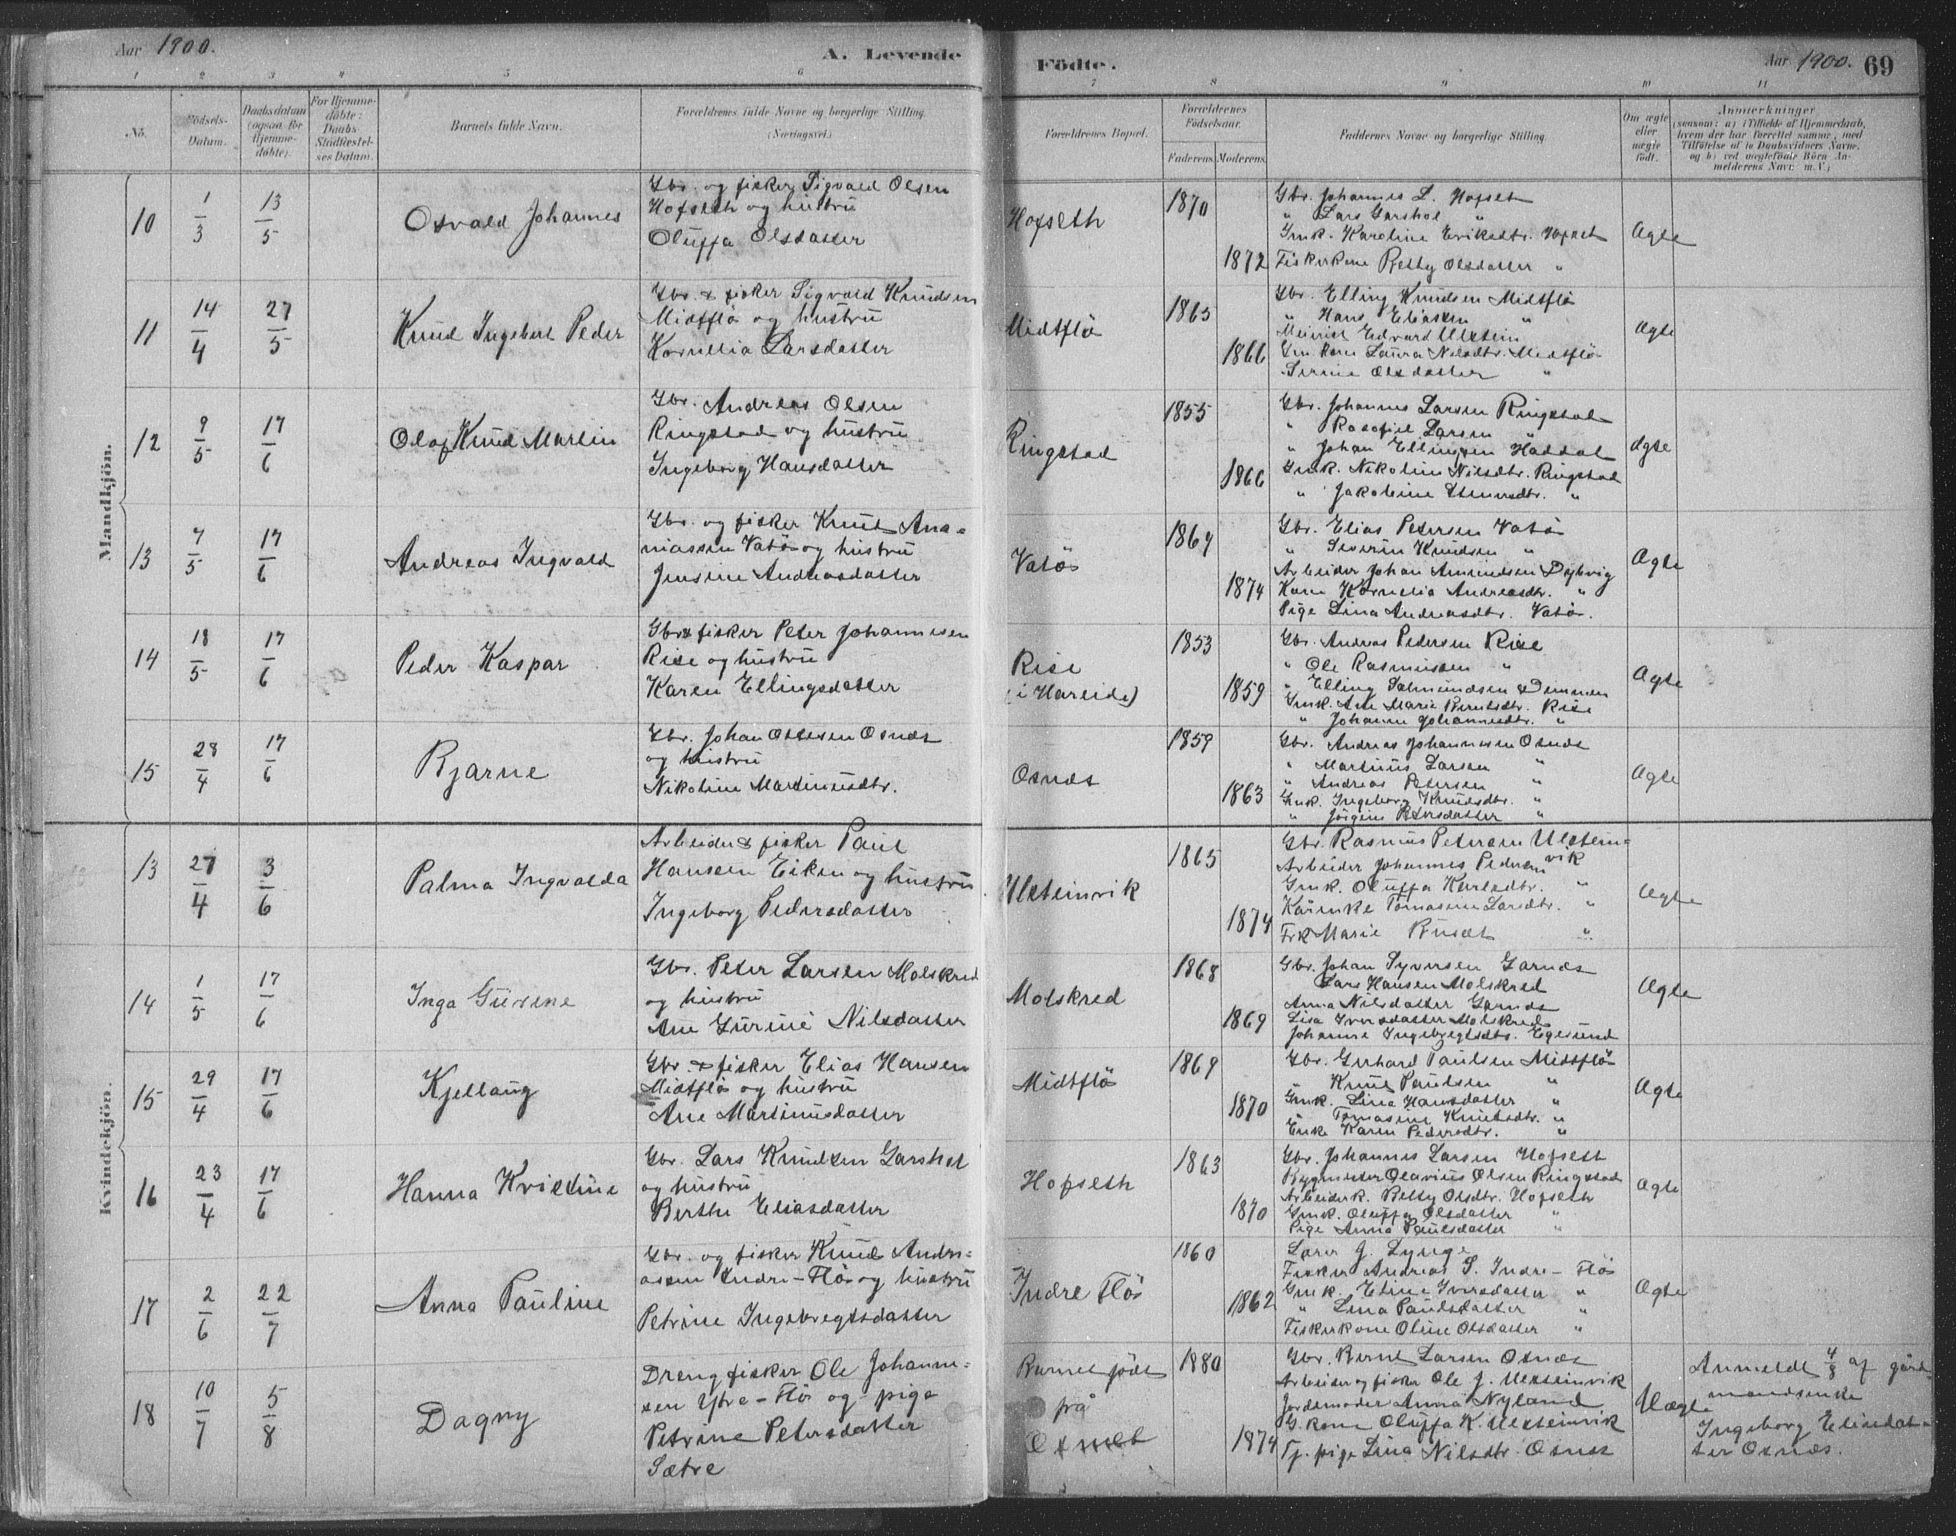 Aar 1900.
A. Levende
Födte.
Aar 1900. 69
1 2 3 4 5 6 7 8 9 10 11
No.
Födsels-
Datum.
Daabsdatum
(ogsaa for
Hjemme-
døbte).
For Hjemme-
døbte:
Daabs-
Stadfæstel-
ses Datum.
Barnets fulde Navn.
Forældrenes fulde Navne og borgerlige Stilling.
(Næringsvei.)
Forældrenes Bopæl.
Forældrenes
Födselsaar.
Faderens. Moderens.
Faddernes Navne og borgerlige Stilling.
Om ægte
eller
uægte
født.
Anmærkninger
(saasom: a) i Tilfælde af Hjemmedaab,
hvem der har forrettet samme, med
Tilføielse af to Daabsvidners Navne,
og b) ved uægtefødte Börn An-
melderens Navn m. V.)
Mandkjön.
10
1/3
13/5
Osvald Johannes
Gbr. og fisker Sigvald Olsen
Hofseth og hustru
Oluffa Olsdatter
Hofseth
1870
1872
Gbr. Johannes L. Hofset
" Lars Garshol "
Gmk. Karoline Eriksdtr. Hofset
Fiskerkone Betty Olsdatter "
Ægte
11
14/4
27/5
Knud Ingebert Peder
Gbr. & fisker Sigvald Knudsen
Midtflö og hustru
Kornelia Larsdatter
Midtflö
1865
1866
Gbr. Elling Knudsen Midtflö
" Hans Eliassen "
Edvard Ulstein
Gm. kone Laura Nilsdtr. Midtflö
Serine Olsdatter "
Ægte
12
9/5
17/6
Olaf Knud Martin
Gbr. Andreas Olsen
Ringstad og hustru
Ingeborg Hansdatter
Ringstad
1855
1866
Gbr. Johannes Larsen Ringstad
" Larsen "
" Johan Ellingsen Haddal
Gmk. Nikoline Nilsdtr. Ringstad
" Jakobine "
Ægte
13
7/5
17/6
Andreas Ingvald
Gbr. og fisker Knut Ana-
niassen Vatö og hustru
Jensine Andreasdatter
Vatö
1869
1874
Gbr. Elias Petersen Vatö
" Severin Knudsen "
Arbeider Johan Amundsen Dybvig
Kone Kornelia Andreasdtr. "
Pige Lina Andreasdtr. Vatö.
Ægte
14
18/5
17/6
Peder Kaspar
Gbr & fisker Peter Johannesen
Rise og hustru
Karen Ellingsdatter
Rise
(i Hareide)
1853
1859
Gbr. Andreas Pedersen Rise
" Ole Rasmussen "
" Elling Salmundsen Dimmen
Gmk. Ane Marie Berntsdtr. Rise
" Johanne Johannesdtr. "
Ægte
15
28/4
17/6
Bjarne
Gbr. Johan Ottesen Osnæs
og hustru
Nikoline Martinusdtr.
Osnæs
1859
1863
Gbr. Andreas Johannesen Osnæs
" Martinus Larsen "
" Andreas Petersen "
Gmk. Ingeborg Knudsdtr. "
" Jörgine Petersdatter "
Ægte
Kvindekjön.
13
27/4
3/6
Palma Ingvalda
Arbeider & fisker Paul
Hansen Eiken og hustru
Ingeborg Pedersdatter
Ulsteinvik
1865
1874
Gbr. Rasmus Petersen Ulstein-
Arbeider Johannes Pedersen vik
Gmk. Oluffa Karlsdtr. "
Tomasine Larsdtr. "
Frk Marie "
Ægte
14
1/5
17/6
Inga Gurine
Gbr. Peter Larsen Molskred
og hustru
Ane Gurine Nilsdatter
Molskred
1868
1869
Gbr. Johan Syversen Garnæs
Lars Hansen Molskred
Anna Nilsdatter Garnæs
Lisa Iversdatter Molskred
Johanne Ingebregtsdtr. Egesund
Ægte
15
29/4
17/6
Kjellaug
Gbr. & fisker Elias Hansen
Midtflö og hustru
Ane Martinusdatter
Midtflö
1869
1870
Gbr. Gerhard Paulsen Midtflö
" Knut Paulsen "
Gmk. Lina Hansdatter "
" Tomasine Knutsdtr. "
Enke Karen Pedersdtr. "
Ægte
16
23/4
17/6
Hanna Kristine
Gbr. Lars Knudsen Garshol
og hustru
Berthe Eliasdatter
Hofseth
1863
1870
Gbr. Johannes Larsen Hofseth
Bygmester Olavius Olsen Ringstad
Arbeiderk. Betty Olsdtr. Hofseth
Gmk. Oluffa Olsdatter "
Pige Anna Paulsdatter "
Ægte
17
2/6
22/7
Anna Pauline
Gbr. og fisker Knud Andre-
assen Indre-Flö og hustru
Petrine Ingebregtsdatter
Indre Flö
1860
1862
Lærer J. Lynge
Fisker Andreas S. Indre-Flö
Gmk. Eline Iversdatter "
" Lina Paulsdatter "
Fiskerkone Oline Olsdatter "
Ægte
18
10/7
5/8
Dagny
Dreng fisker Ole Johanne-
sen Ytre-Flö og pige
Petrine Petersdatter
Sætre
Barnet född
på
Osnæs
1880
1874
Gbr. Bernt Larsen Osnæs
Arbeider og fisker Ole J. Ulsteinvik
Jordemoder Anna Nyland
G. kone Oluffa K. Ulsteinvik
Tj. pige Lina Nilsdtr. Osnæs
Uægte
Anmeldt 4/8 af gård
mandsenke
Ingeborg Eliasdat-
ter Osnæs.